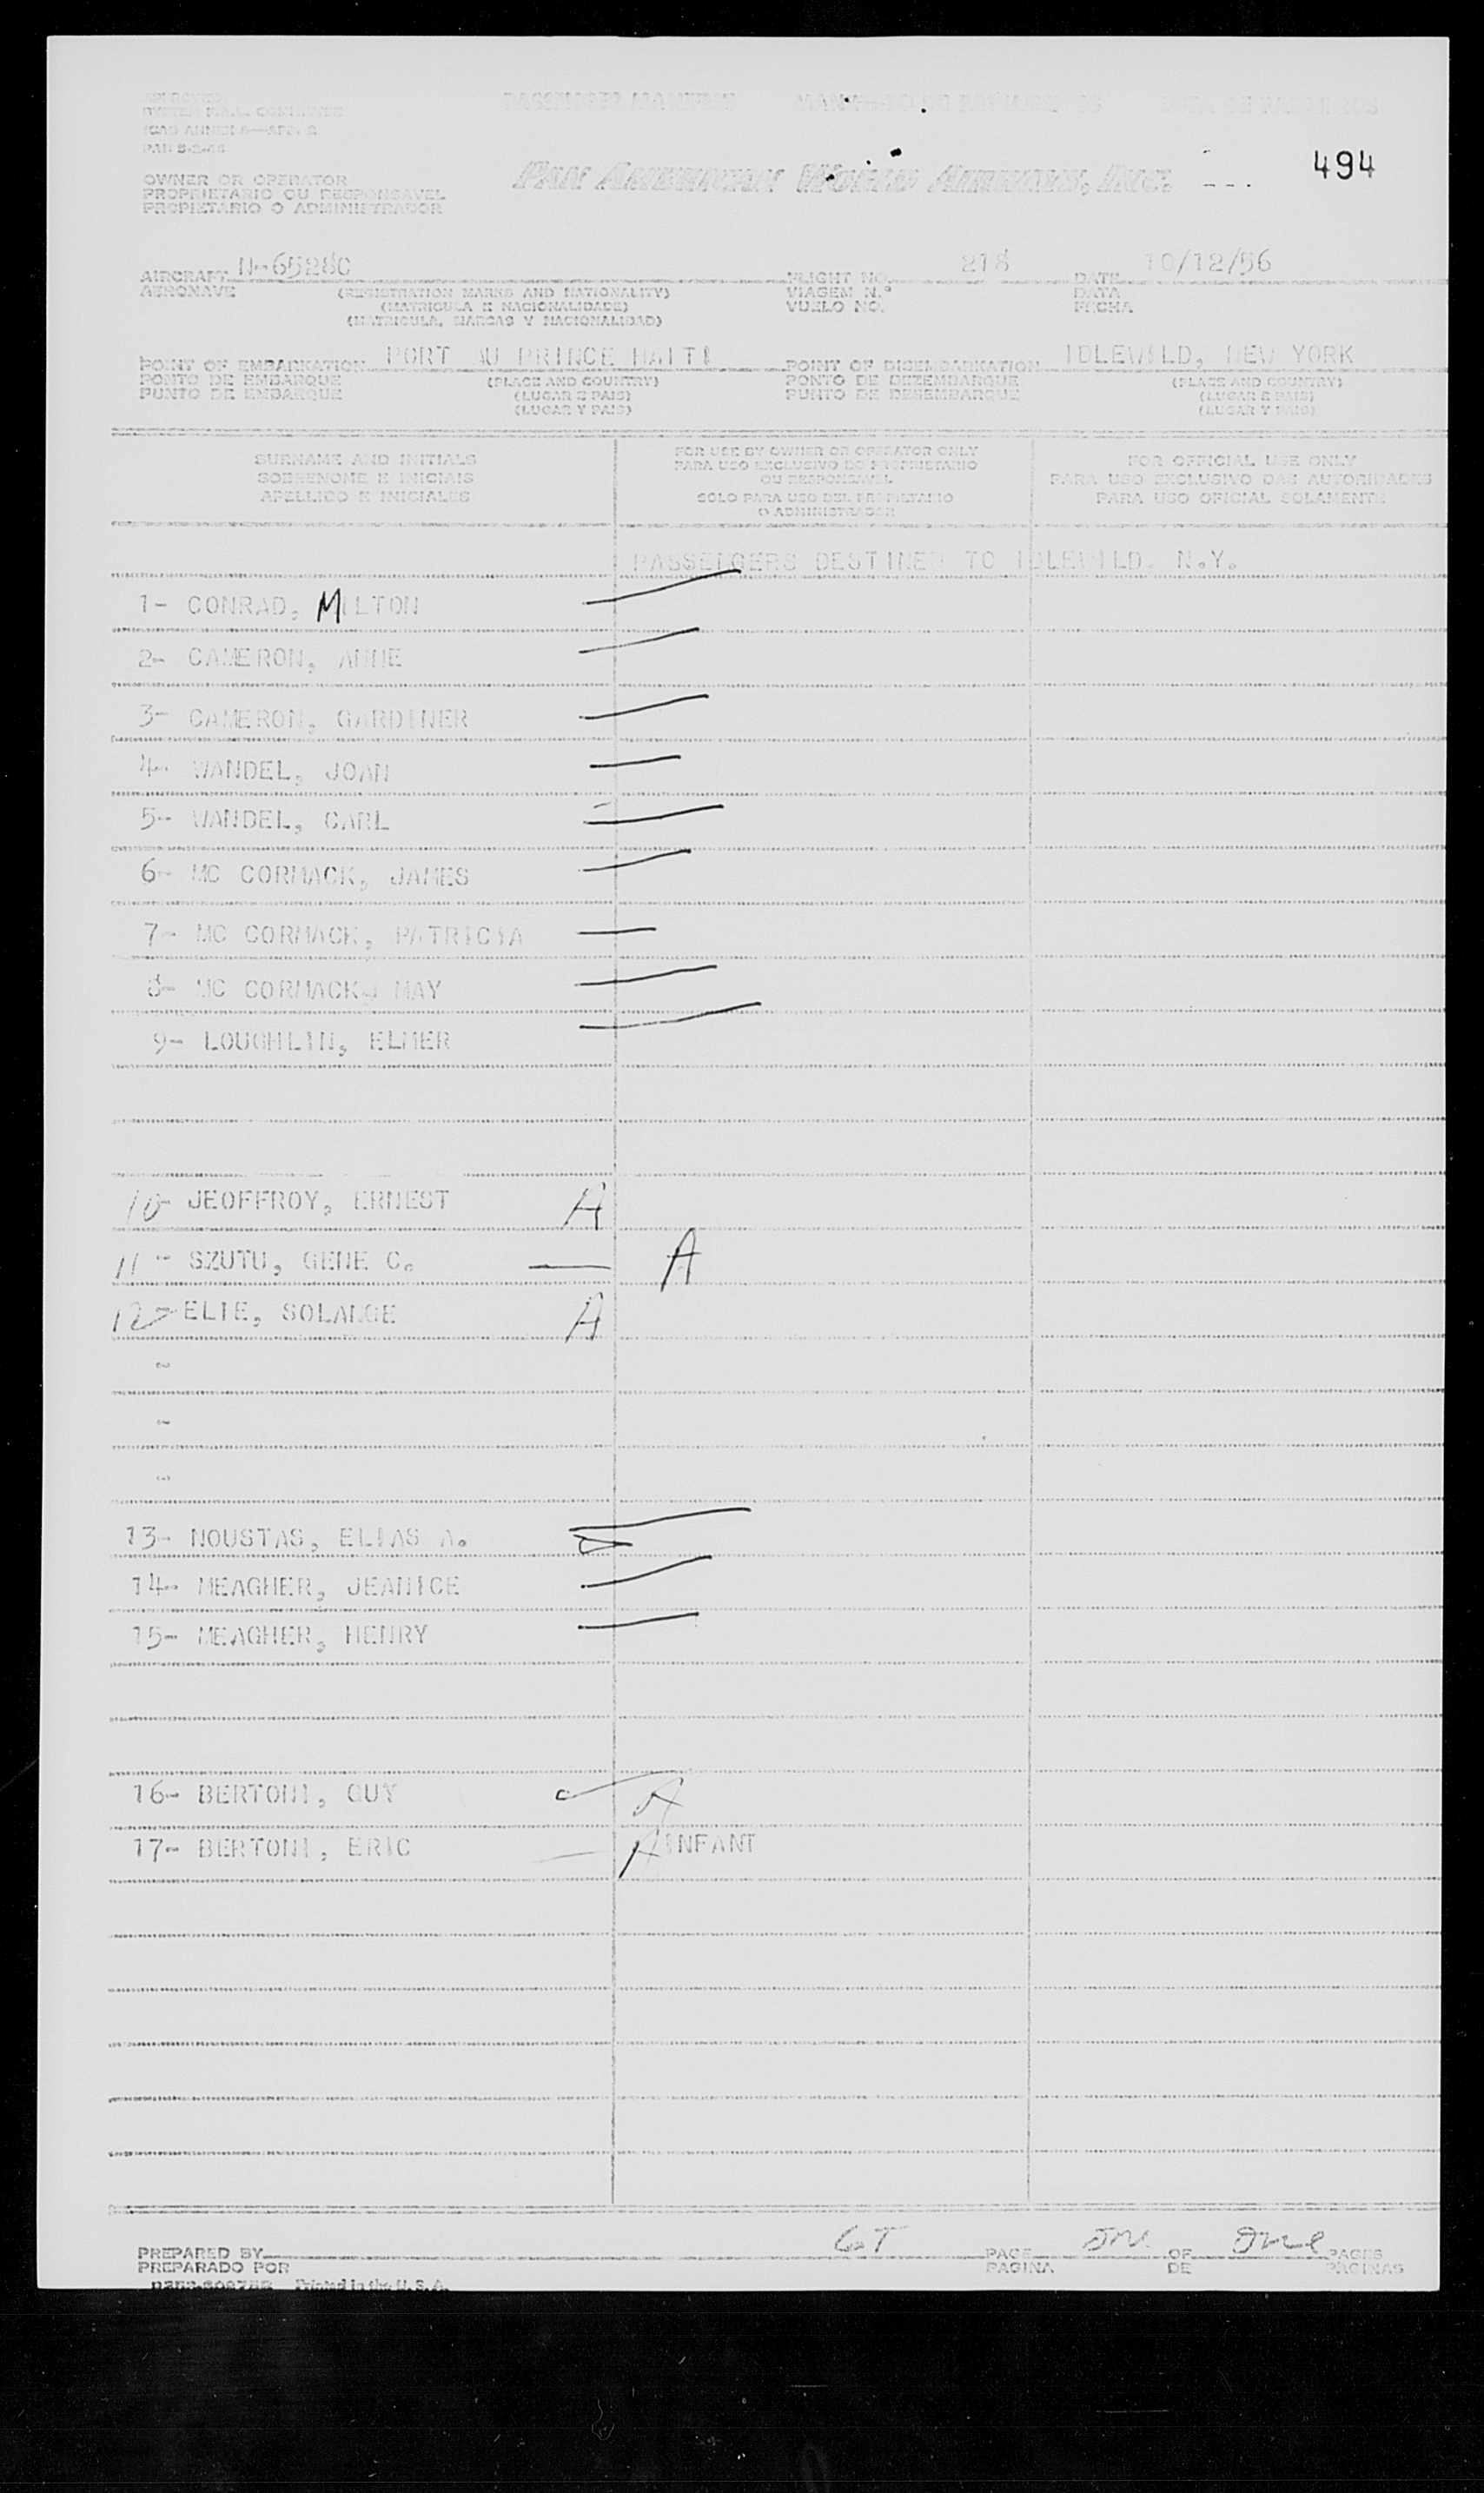 APPROVED
ICAO ANNEX 9—APP. 2
PASSENGER MANIFEST
PAN AMERICAN WORLD AIRWAYS, INC.
494
OWNER OR OPERATOR
PROPRIETARIO OU RESPONSAVEL
PROPIETARIO O ADMINISTRADOR
AIRCRAFT N-6528C FLIGHT NO. 218 DATE 10/12/56
AERONAVE (REGISTRATION MARKS AND NATIONALITY) VIAGEM N.º DATA
(MATRICULA E NACIONALIDADE) VUELO NO. FECHA
(MATRICULA, MARCAS Y NACIONALIDAD)
POINT OF EMBARKATION PORT AU PRINCE HAITI POINT OF DISEMBARKATION IDLEWILD, NEW YORK
PONTO DE EMBARQUE (PLACE AND COUNTRY) PONTO DE DEZEMBARQUE (PLACE AND COUNTRY)
PUNTO DE EMBARQUE (LUGAR E PAIS) PUNTO DE DESEMBARQUE (LUGAR E PAIS)
(LUGAR Y PAIS) (LUGAR Y PAIS)
SURNAME AND INITIALS
SOBRENOME E INICIAIS
APELLIDO E INICIALES
FOR USE BY OWNER OR OPERATOR ONLY
PARA USO EXCLUSIVO DO PROPRIETARIO
OU RESPONSAVEL
SOLO PARA USO DEL PROPIETARIO
O ADMINISTRADOR
FOR OFFICIAL USE ONLY
PARA USO EXCLUSIVO DAS AUTORIDADES
PARA USO OFICIAL SOLAMENTE
PASSENGERS DESTINED TO IDLEWILD, N.Y.
1- CONRAD, MILTON
2- CAMERON, ANNE
3- CAMERON, GARDINER
4- WANDEL, JOAN
5- WANDEL, CARL
6- MC CORMACK, JAMES
7- MC CORMACK, PATRICIA
8- MC CORMACK, MAY
9- LOUGHLIN, ELMER
10- JEOFFROY, ERNEST A
11 - SZUTU, GENE C. A
12- ELIE, SOLANGE A
13- NOUSTAS, ELIAS A.
14- MEAGHER, JEANICE
15- MEAGHER, HENRY
16- BERTONI, GUY A
17- BERTONI, ERIC A INFANT
PREPARED BY G.T PAGE OF One PAGES
PREPARADO POR PAGINA DE PAGINAS
Printed in the U.S.A.